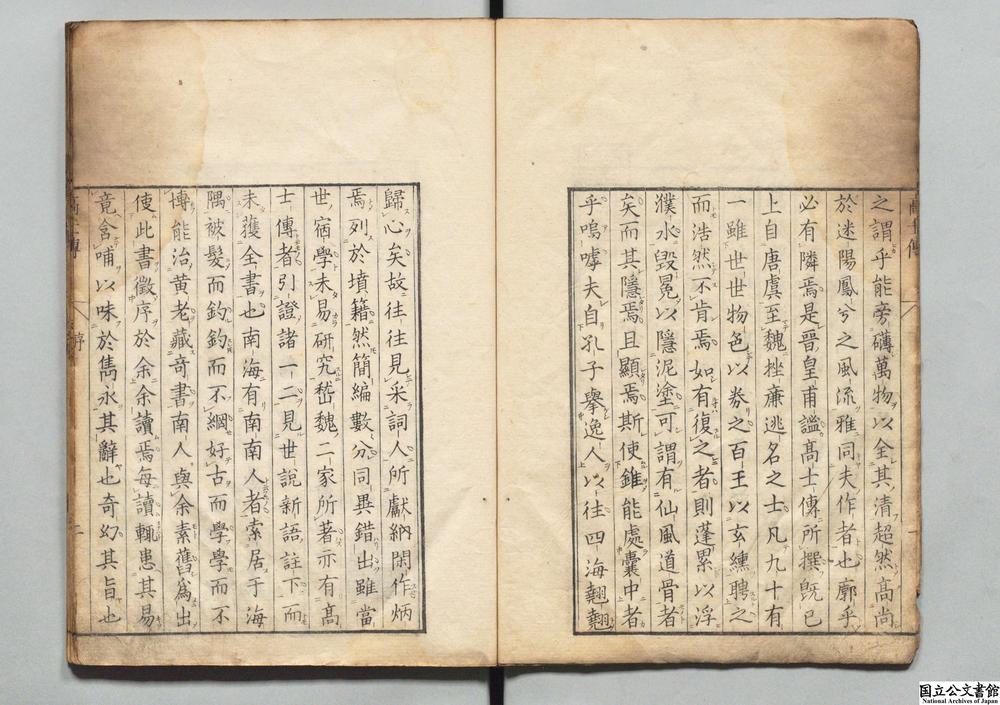 之謂乎能旁礴萬物以全其清超然高尚
於迷陽鳳兮之風流雅同夫作者也廓乎
必有隣焉是晋皇甫謐高士傳所撰既已
上自唐虞至魏挫廉逃名之士凡九十有
一雖世世物色以券之百王以玄纁聘之
而浩然不肯焉如有復之者則蓬累以浮
濮水毀冕以隱泥塗可謂有仙風道骨者
矣而其隱焉且顯焉斯使錐能處囊中者
乎嗚嘑夫自孔子擧逸人以往四海翹翹
歸心矣故往往見采詞人所獻納閑作炳
焉列於墳籍然簡編數分同異錯出雖當
世宿學未易研究嵇魏二家所著亦有高
士傳者引證諸一二見世說新語註下而
未獲全書也南海有南南人者索居于海
隅被髮而釣釣而不綱好古而學學而不
博能治黄老藏奇書南人與余素舊爲出
使此書徵序於余余讀焉每讀輒患其易
竟含哺以味於雋永其辭也奇幻其旨也
高士傳
序
二
国立公文書館
National Archives of Japan